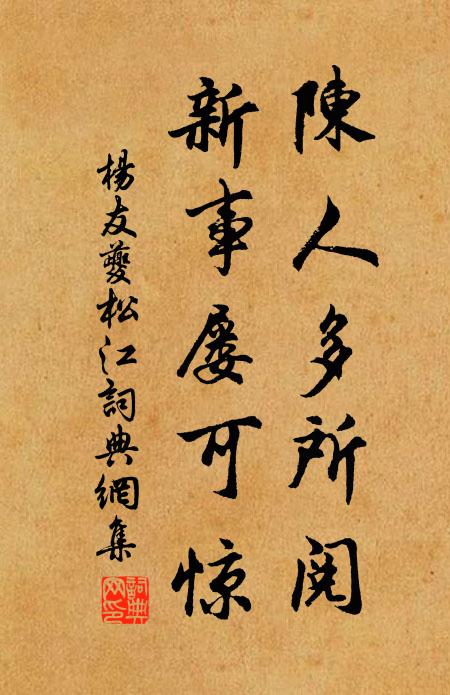 陳人多所閱
新事屢可惊
楊友夔松江詞典網集
詞典网印